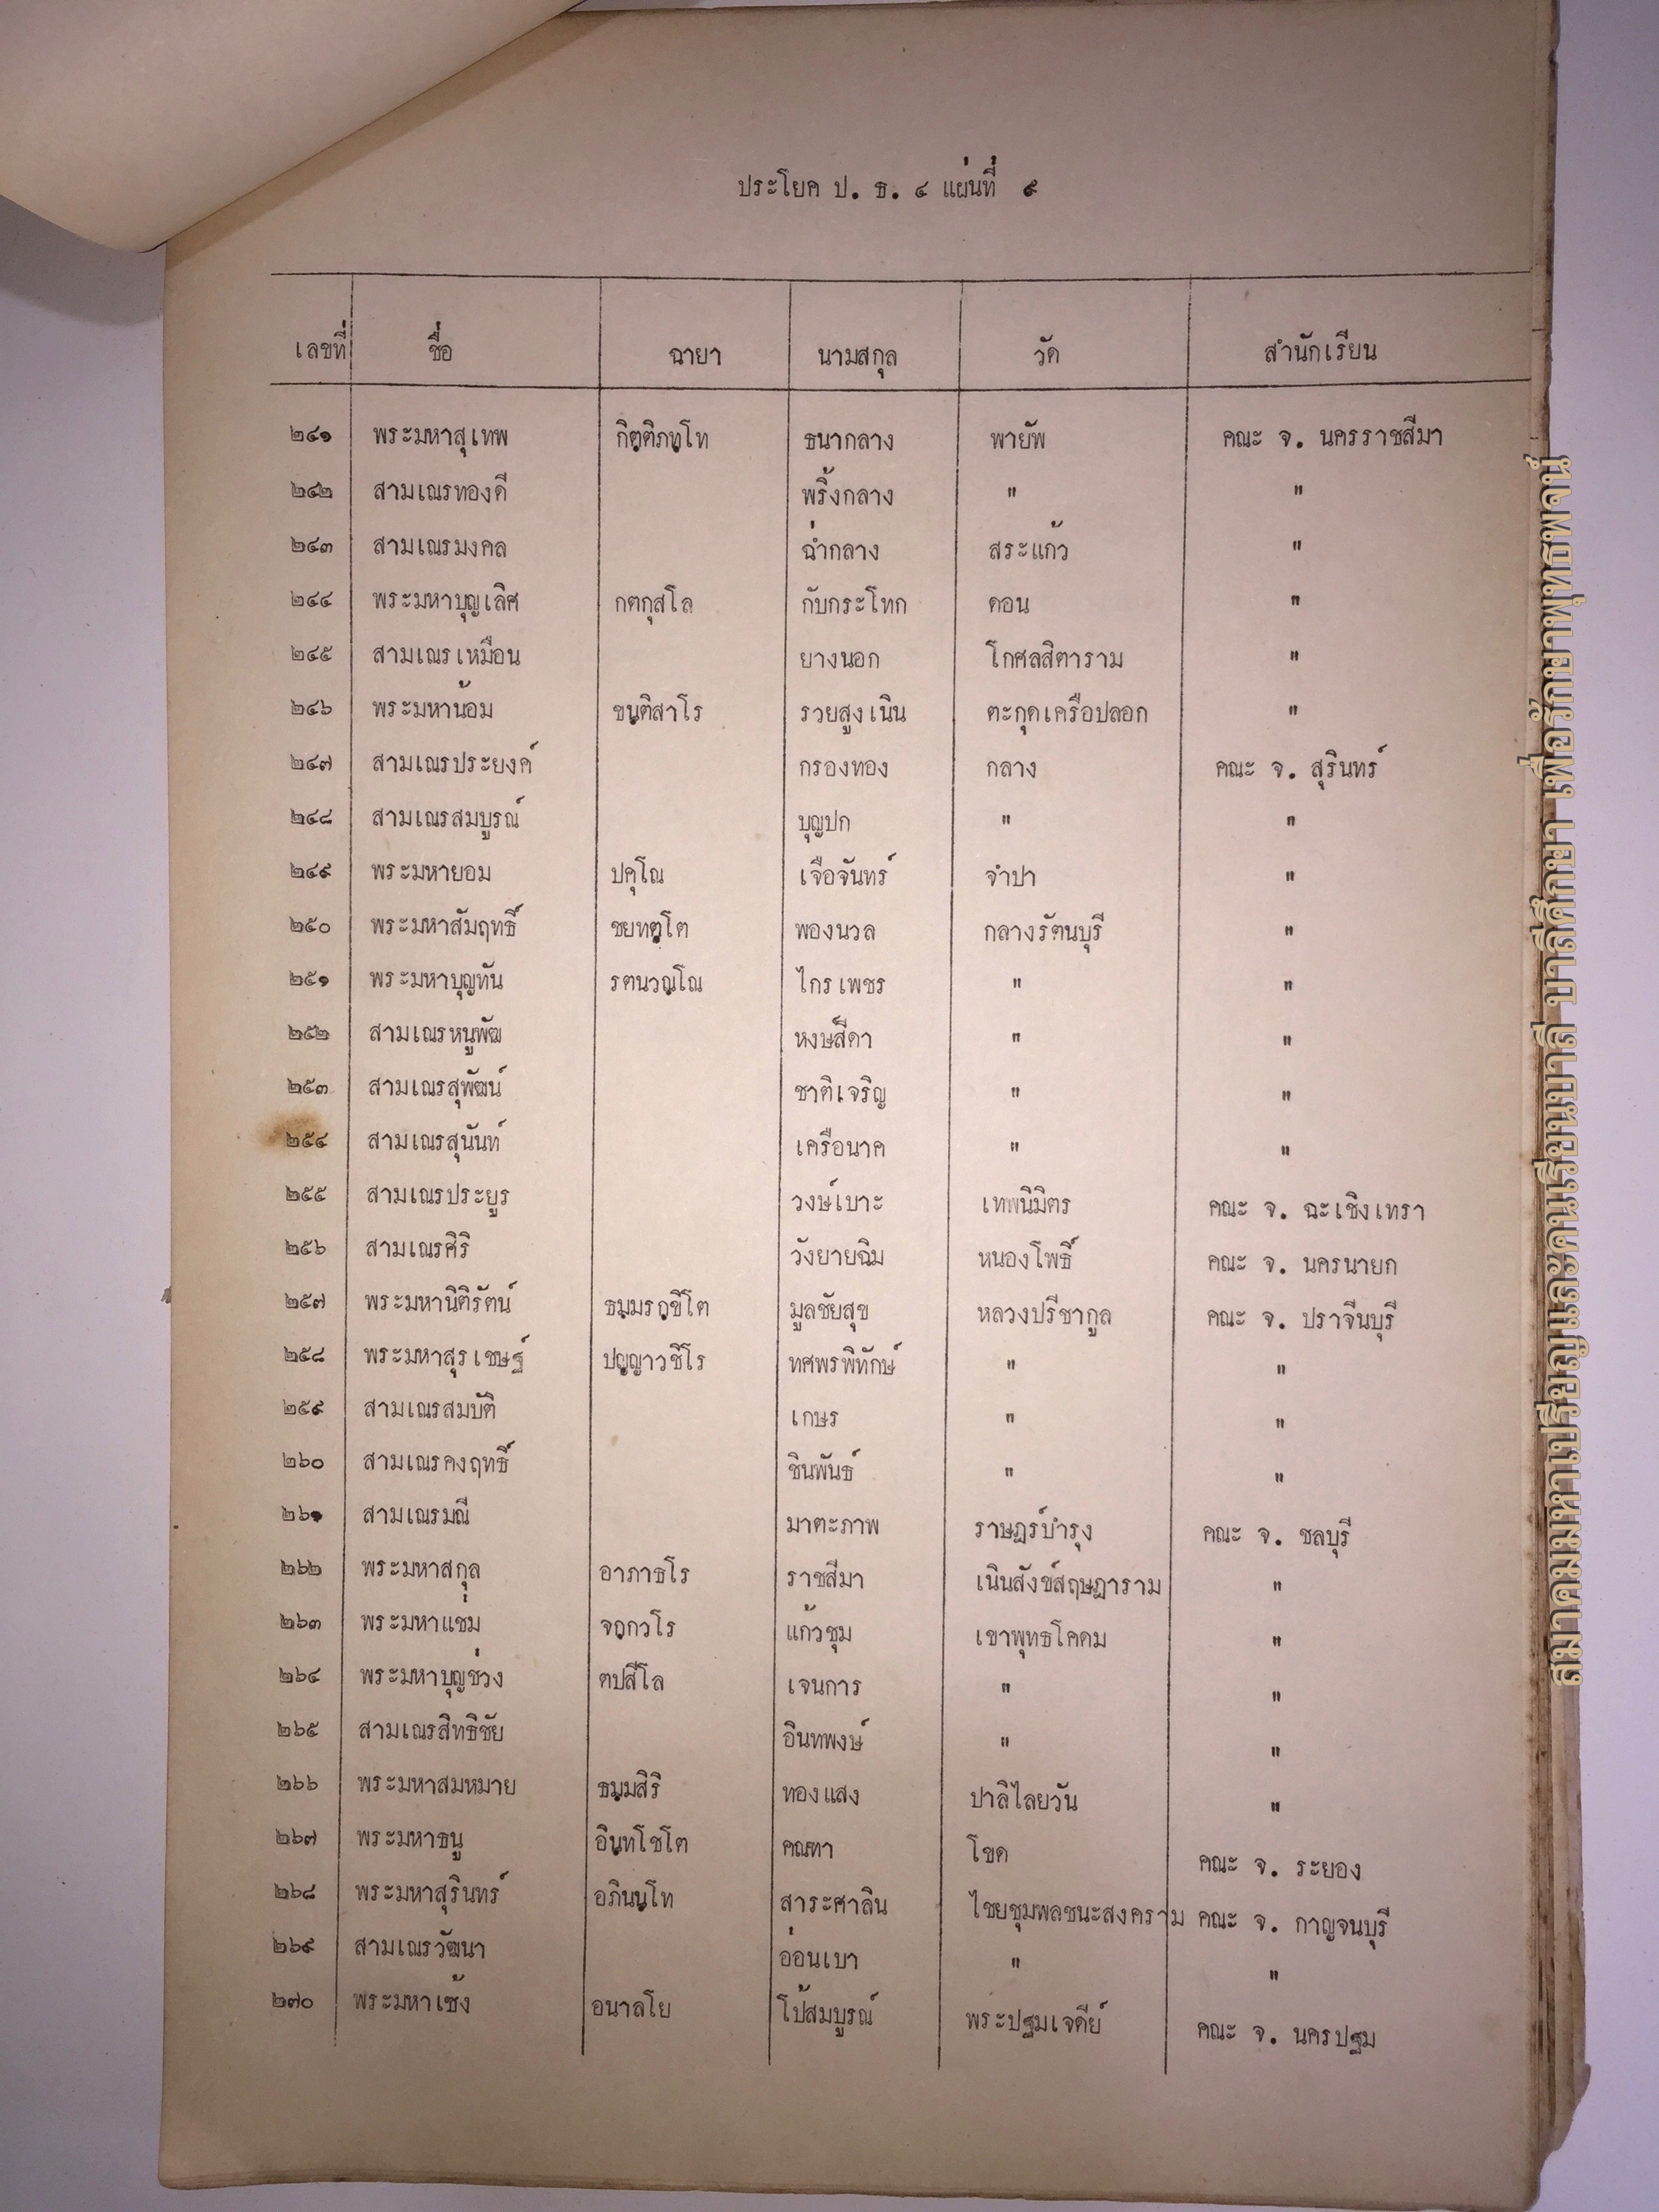 ประโยค ป. ธ. ๔ แผ่นที่ ๙
เลขที่ ชื่อ ฉายา นามสกุล วัด สำนักเรียน
๒๔๑ พระมหาสุเทพ กิตฺติภทฺโท ธนากลาง พายัพ คณะ จ. นครราชสีมา
๒๔๒ สามเณรทองดี พริ้งกลาง " "
๒๔๓ สามเณรมงคล ฉ่ำกลาง สระแก้ว "
๒๔๔ พระมหาบุญเลิศ กตกุสโล กับกระโทก ดอน "
๒๔๕ สามเณรเหมือน ยางนอก โกศลสิตาราม "
๒๔๖ พระมหาน้อม ขนฺติสาโร รวยสูงเนิน ตะกุดเครือปลอก "
๒๔๗ สามเณรประยงค์ กรองทอง กลาง คณะ จ. สุรินทร์
๒๔๘ สามเณรสมบูรณ์ บุญปก " "
๒๔๙ พระมหายอม ปคุโณ เจือจันทร์ จำปา "
๒๕๐ พระมหาสัมฤทธิ์ ชยทตฺโต พองนวล กลางรัตนบุรี "
๒๕๑ พระมหาบุญทัน รตนวณฺโณ ไกรเพชร " "
๒๕๒ สามเณรหนูพัฒ หงษ์สีดา " "
๒๕๓ สามเณรสุพัฒน์ ชาติเจริญ " "
๒๕๔ สามเณรสุนันท์ เครือนาค " "
๒๕๕ สามเณรประยูร วงษ์เบาะ เทพนิมิตร คณะ จ. ฉะเชิงเทรา
๒๕๖ สามเณรศิริ วังยายฉิม หนองโพธิ์ คณะ จ. นครนายก
๒๕๗ พระมหานิติรัตน์ ธมฺมรกฺขิโต มูลชัยสุข หลวงปรีชากูล คณะ จ. ปราจีนบุรี
๒๕๘ พระมหาสุรเชษฐ์ ปญฺญาวชิโร ทศพรพิทักษ์ " "
๒๕๙ สามเณรสมบัติ เกษร " "
๒๖๐ สามเณรคงฤทธิ์ ชินพันธ์ " "
๒๖๑ สามเณรมณี มาตะภาพ ราษฎร์บำรุง คณะ จ. ชลบุรี
๒๖๒ พระมหาสกุล อาภาธโร ราชสีมา เนินสังข์สฤษฎาราม "
๒๖๓ พระมหาแช่ม จกฺกวโร แก้วชุม เขาพุทธโคดม "
๒๖๔ พระมหาบุญช่วง ตปสีโล เจนการ " "
๒๖๕ สามเณรสิทธิชัย อินทพงษ์ " "
๒๖๖ พระมหาสมหมาย ธมฺมสิริ ทองแสง ปาลิไลยวัน "
๒๖๗ พระมหาธนู อินฺทโชโต คณฑา โขด คณะ จ. ระยอง
๒๖๘ พระมหาสุรินทร์ อภินนฺโท สาระศาลิน ไชยชุมพลชนะสงคราม คณะ จ. กาญจนบุรี
๒๖๙ สามเณรวัฒนา อ่อนเบา " "
๒๗๐ พระมหาเซ้ง อนาลโย โป้สมบูรณ์ พระปฐมเจดีย์ คณะ จ. นครปฐม
สมาคมมหาเปรียญและคนเรียนบาลี บาลีศึกษา เพื่อรักษาพุทธพจน์